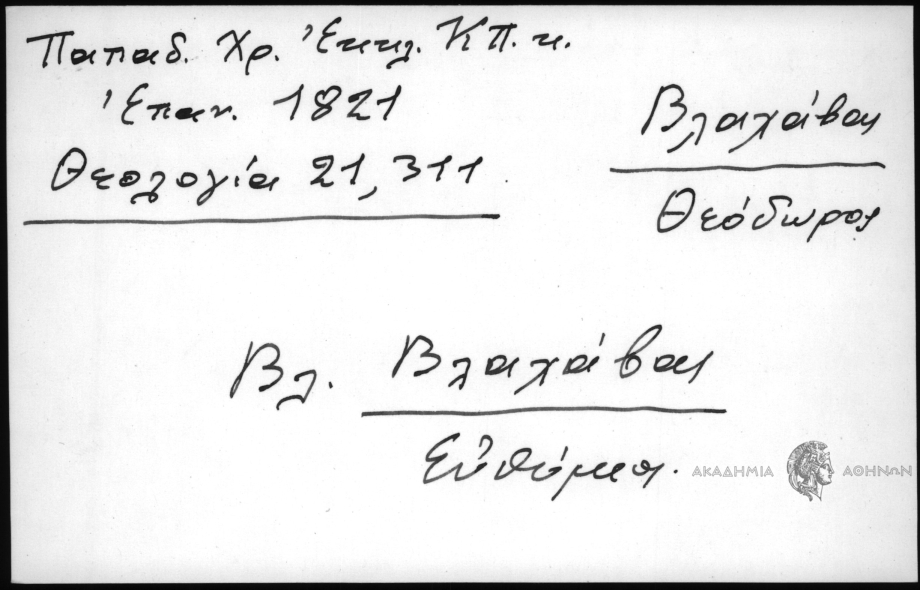 Παπαδ. Χρ. Ἐκκλ. ΚΠ. κ.
Ἐπαν. 1821
Θεολογία 21, 311
Βλαχάβας
Θεόδωρος
Βλ. Βλαχάβας
Εὐθύμιος.
ΑΚΑΔΗΜΙΑ ΑΘΗΝΩΝ